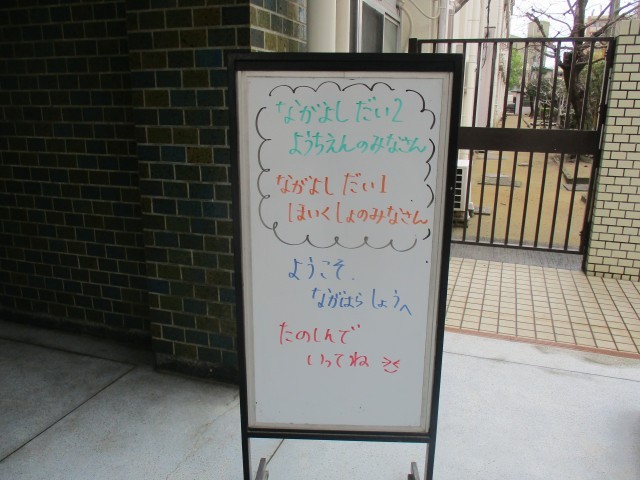 ながよしだい2
ようちえんのみなさん
ながよしだい1
ほいくしょのみなさん
ようこそ
ながはらしょうへ
たのしんで
いってね